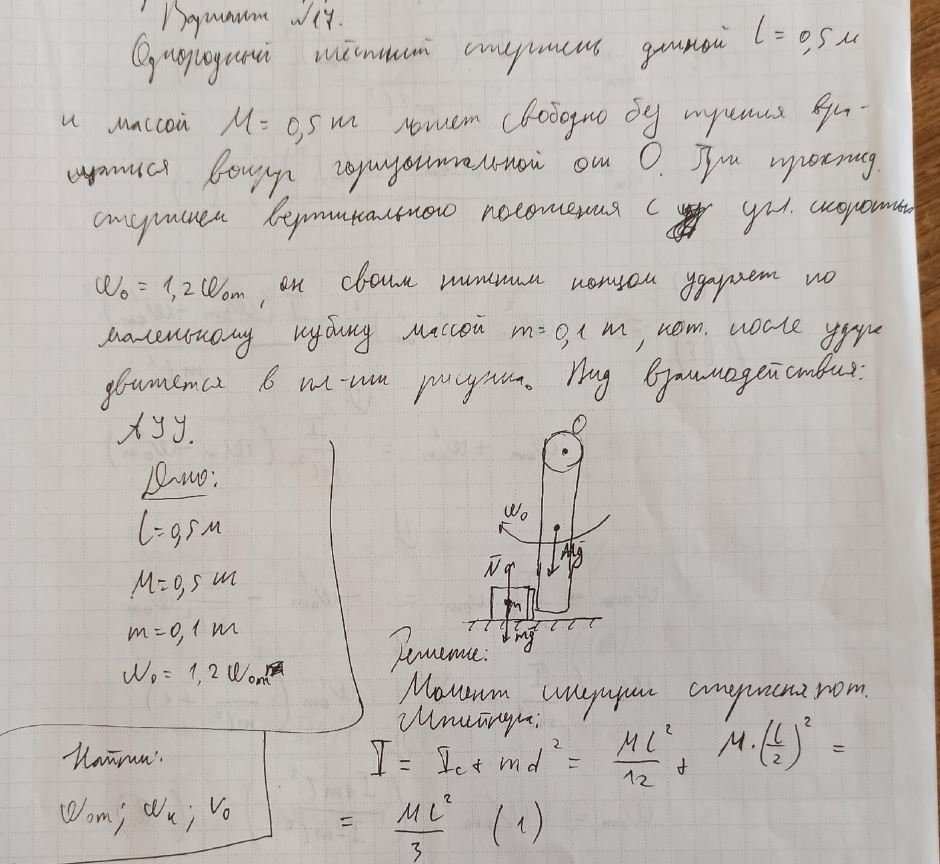 Вариант №17.
Однородный тонкий стержень длиной l = 0,5 м
и массой M = 0,5 кг может свободно без трения вра-
щаться вокруг горизонтальной оси O. При прохожд.
стержнем вертикального положения с угл. скоростью
ω₀ = 1,2 ω₀m, он своим нижним концом ударяет по
маленькому кубику массой m = 0,1 кг, кот. после удара
движется в пл-ти рисунка. Вид взаимодействия:
АУУ.
Дано:
l = 0,5 м
M = 0,5 кг
m = 0,1 кг
ω₀ = 1,2 ω₀m
Найти:
ω₀m; ωк; v₀
O
ω₀
Mg
N
m
mg
Решение:
Момент инерции стержня по т.
Штейнера:
I = Ic + md² = Ml²/12 + M·(l/2)² =
= Ml²/3 (1)